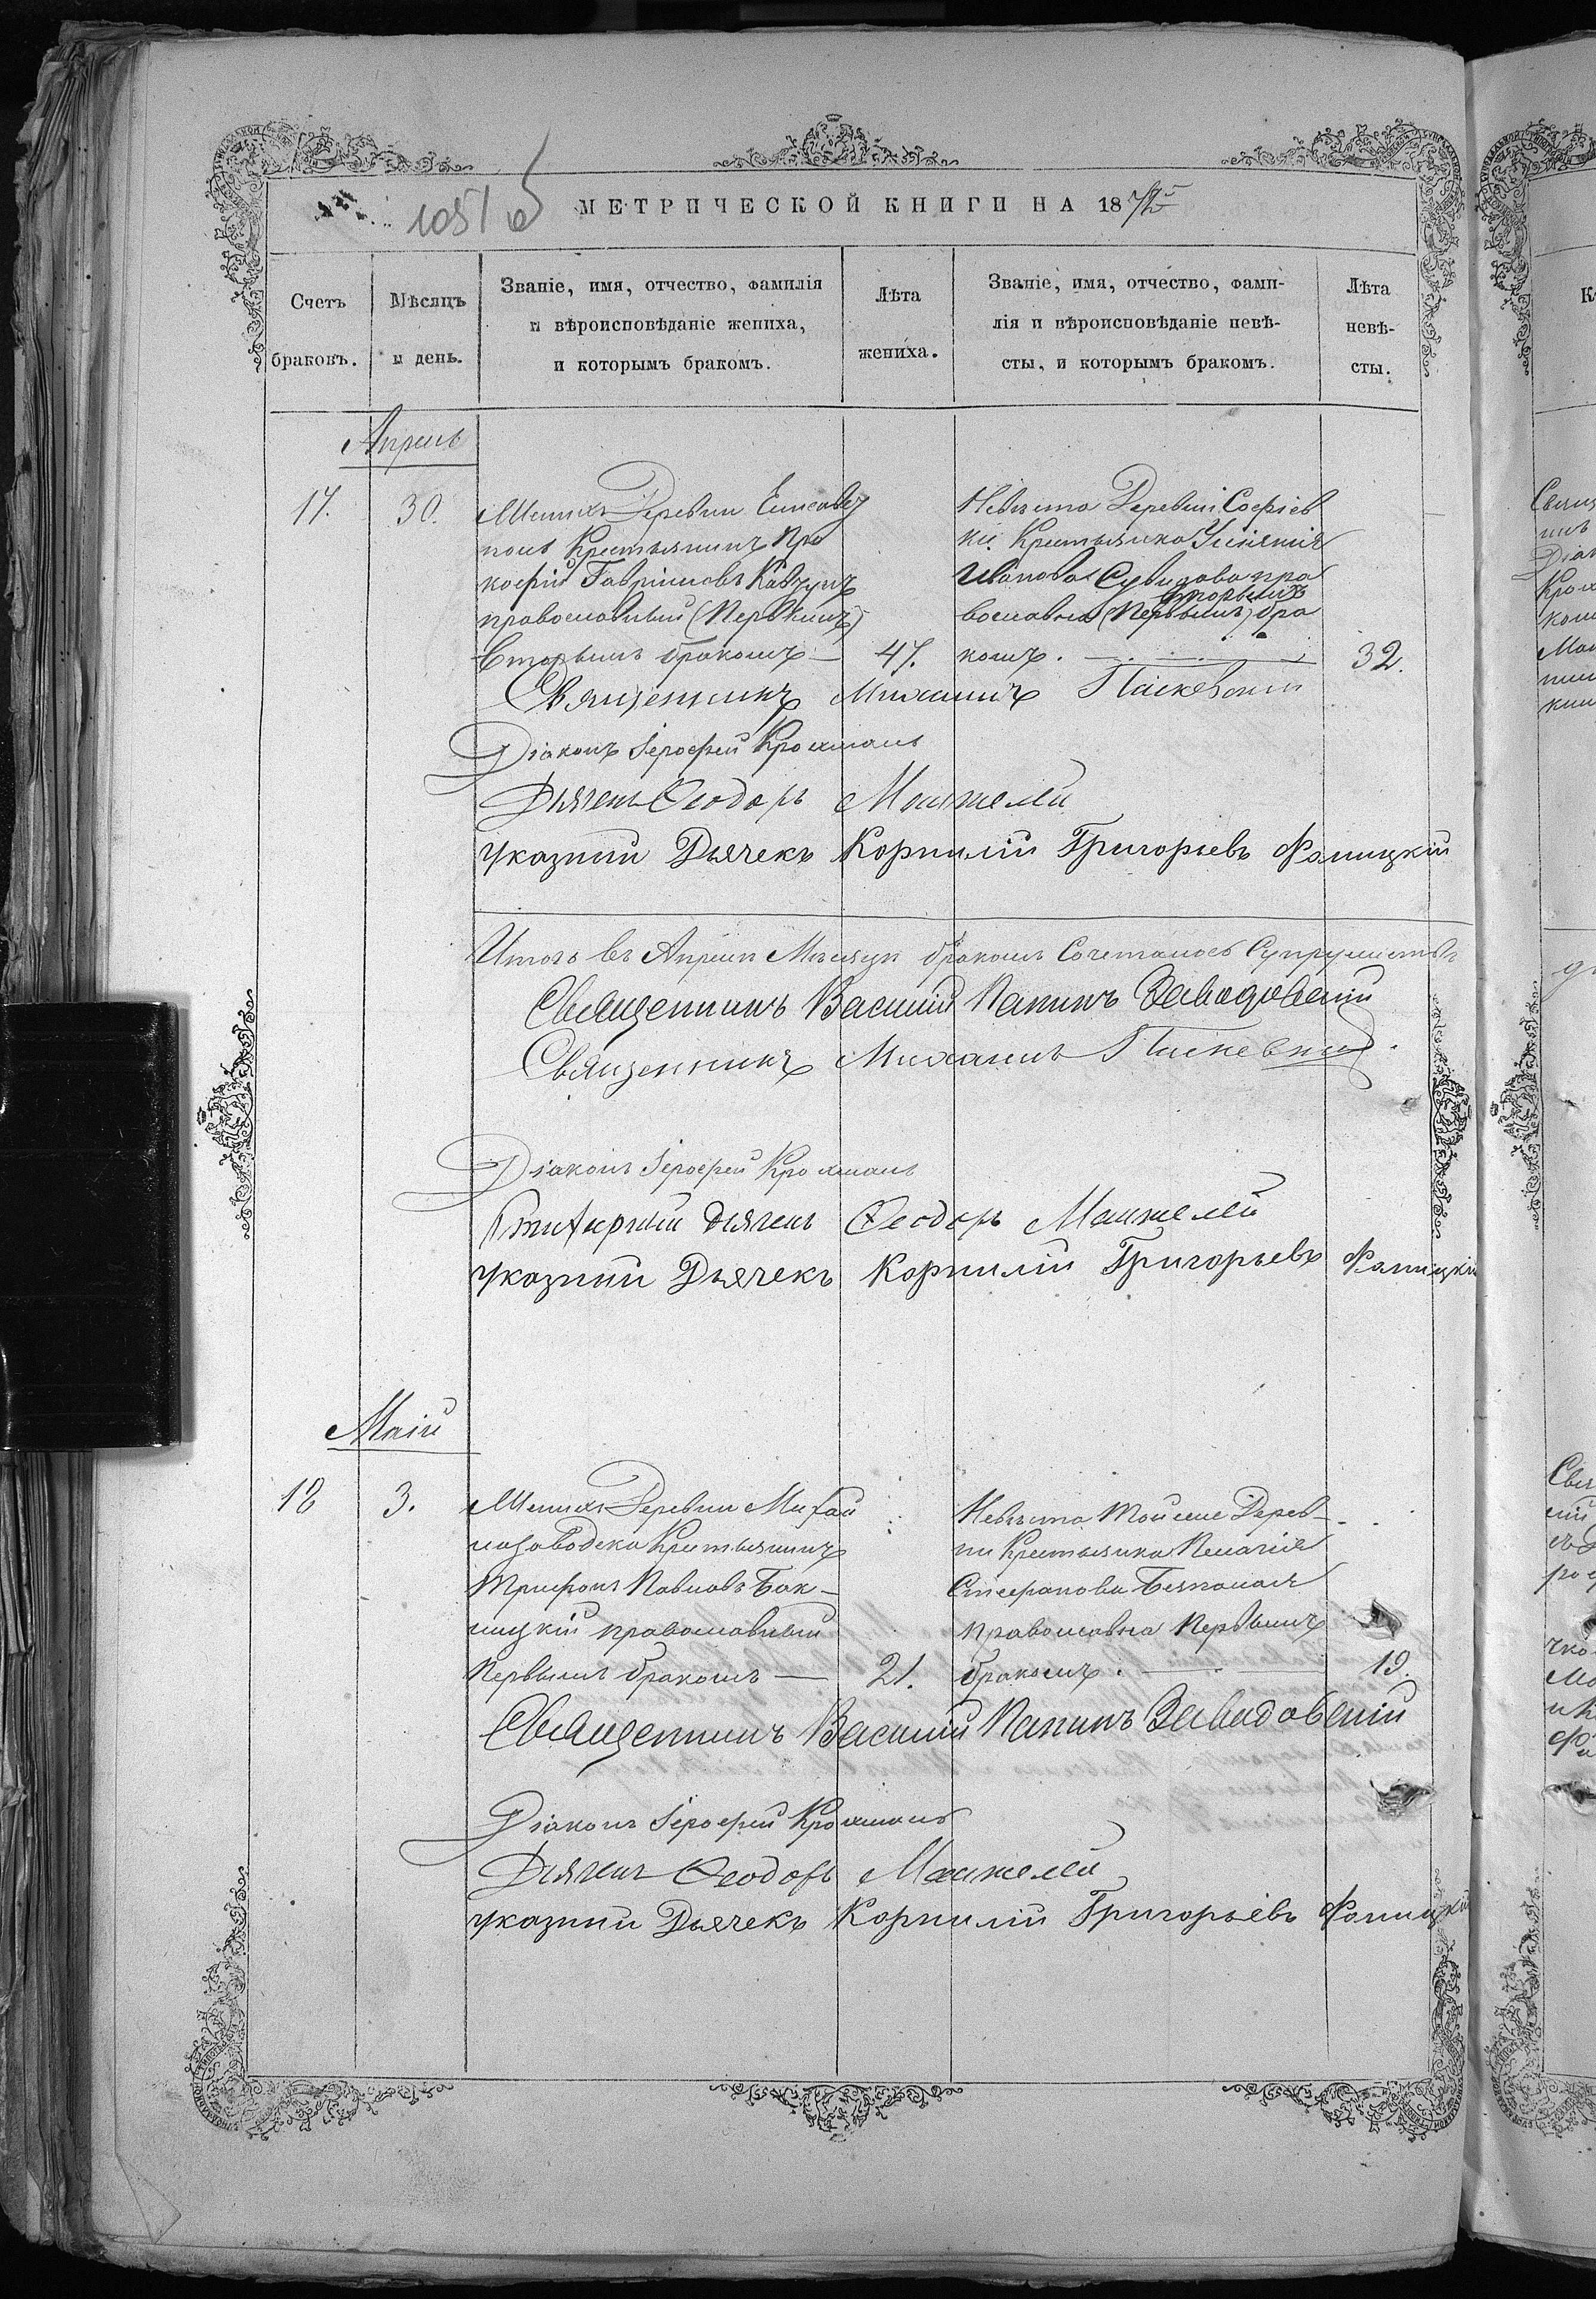 105/6
МЕТРИЧЕСКОЙ КНИГИ НА 1875
Счетъ браковъ.
Мѣсяцъ и день.
Званіе, имя, отчество, фамилія
и вѣроисповѣданіе жениха,
и которымъ бракомъ.
Лѣта жениха.
Званіе, имя, отчество, фами-
лія и вѣроисповѣданіе невѣ-
сты, и которымъ бракомъ.
Лѣта невѣ-
сты.
Апрель
17. 30.
Женихъ Деревни Елисавет
поля Крестьянинъ Про
кофій Гавриловъ Кавунъ
православный (Первымъ)
Вторымъ бракомъ — 47.
Невѣста Деревни Софіев
ки Крестьянка
Иванова пра
вторымъ
вославна (Первымъ) бра
комъ. — 32.
Священникъ Михаилъ Паскевскій
Діаконъ Іерофей Крохмаль
Дьячекъ Ѳеодоръ Манжелей
Указный Дьячекъ Корнилій Григорьевъ Фалицкій
Итого въ Апрелѣ Мѣсяцѣ бракомъ Сочеталось Супружествъ
Священникъ Василій Папинъ Завадовскій
Священникъ Михаилъ Паскевскій.
Діаконъ Іерофей Крохмаль
дьячекъ Ѳеодоръ Манжелей
Указный Дьячекъ Корнилій Григорьевъ Фалицкій
Маій
18 3.
Женихъ Деревни Михай
лозаводска Крестьянинъ
Трифонъ Павловъ Бак-
лицкій православный
Первымъ бракомъ — 21.
Невѣста Той же Дерев-
ни Крестьянка Пелагія
Стефанова
православна Первымъ
бракомъ. — 19.
Священникъ Василій Папинъ Завадовскій
Діаконъ Іерофей Крохмаль
Дьячекъ Ѳеодоръ Манжелей
Указный Дьячекъ Корнилій Григорьевъ Фалицкій